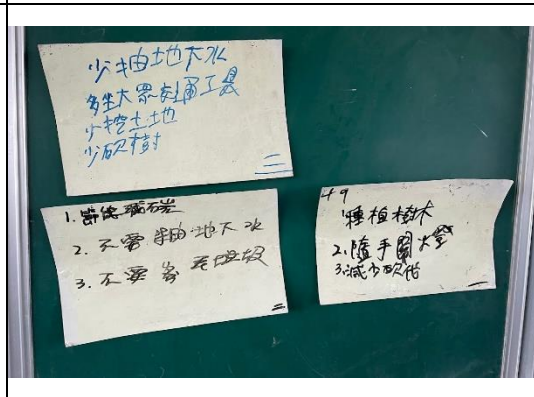 少抽地下水
多坐大眾交通工具
少挖土地
少砍樹
三
1. 節能減碳
2. 不要抽地下水
3. 不要 垃圾
二
種植樹木
2. 隨手關
3. 減少砍伐
一